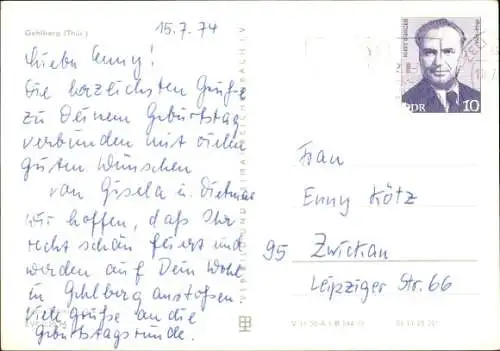 Gehlberg (Thür.)
15.7.74
Liebe Enny!
Die herzlichsten Grüße
zu Deinem Geburtstag
verbunden mit vielen
guten Wünschen
von Gisela u. Dietmar
Wir hoffen, daß Ihr
recht schön feiert und
werden auf Dein Wohl
in Gehlberg anstoßen
Viele Grüße an die
Geburtstagsrunde.
DDR 10
Frau
Enny Kötz
95 Zwickau
Leipziger Str. 66
VERLAG BILD UND HEIMAT REICHENBACH I.V.